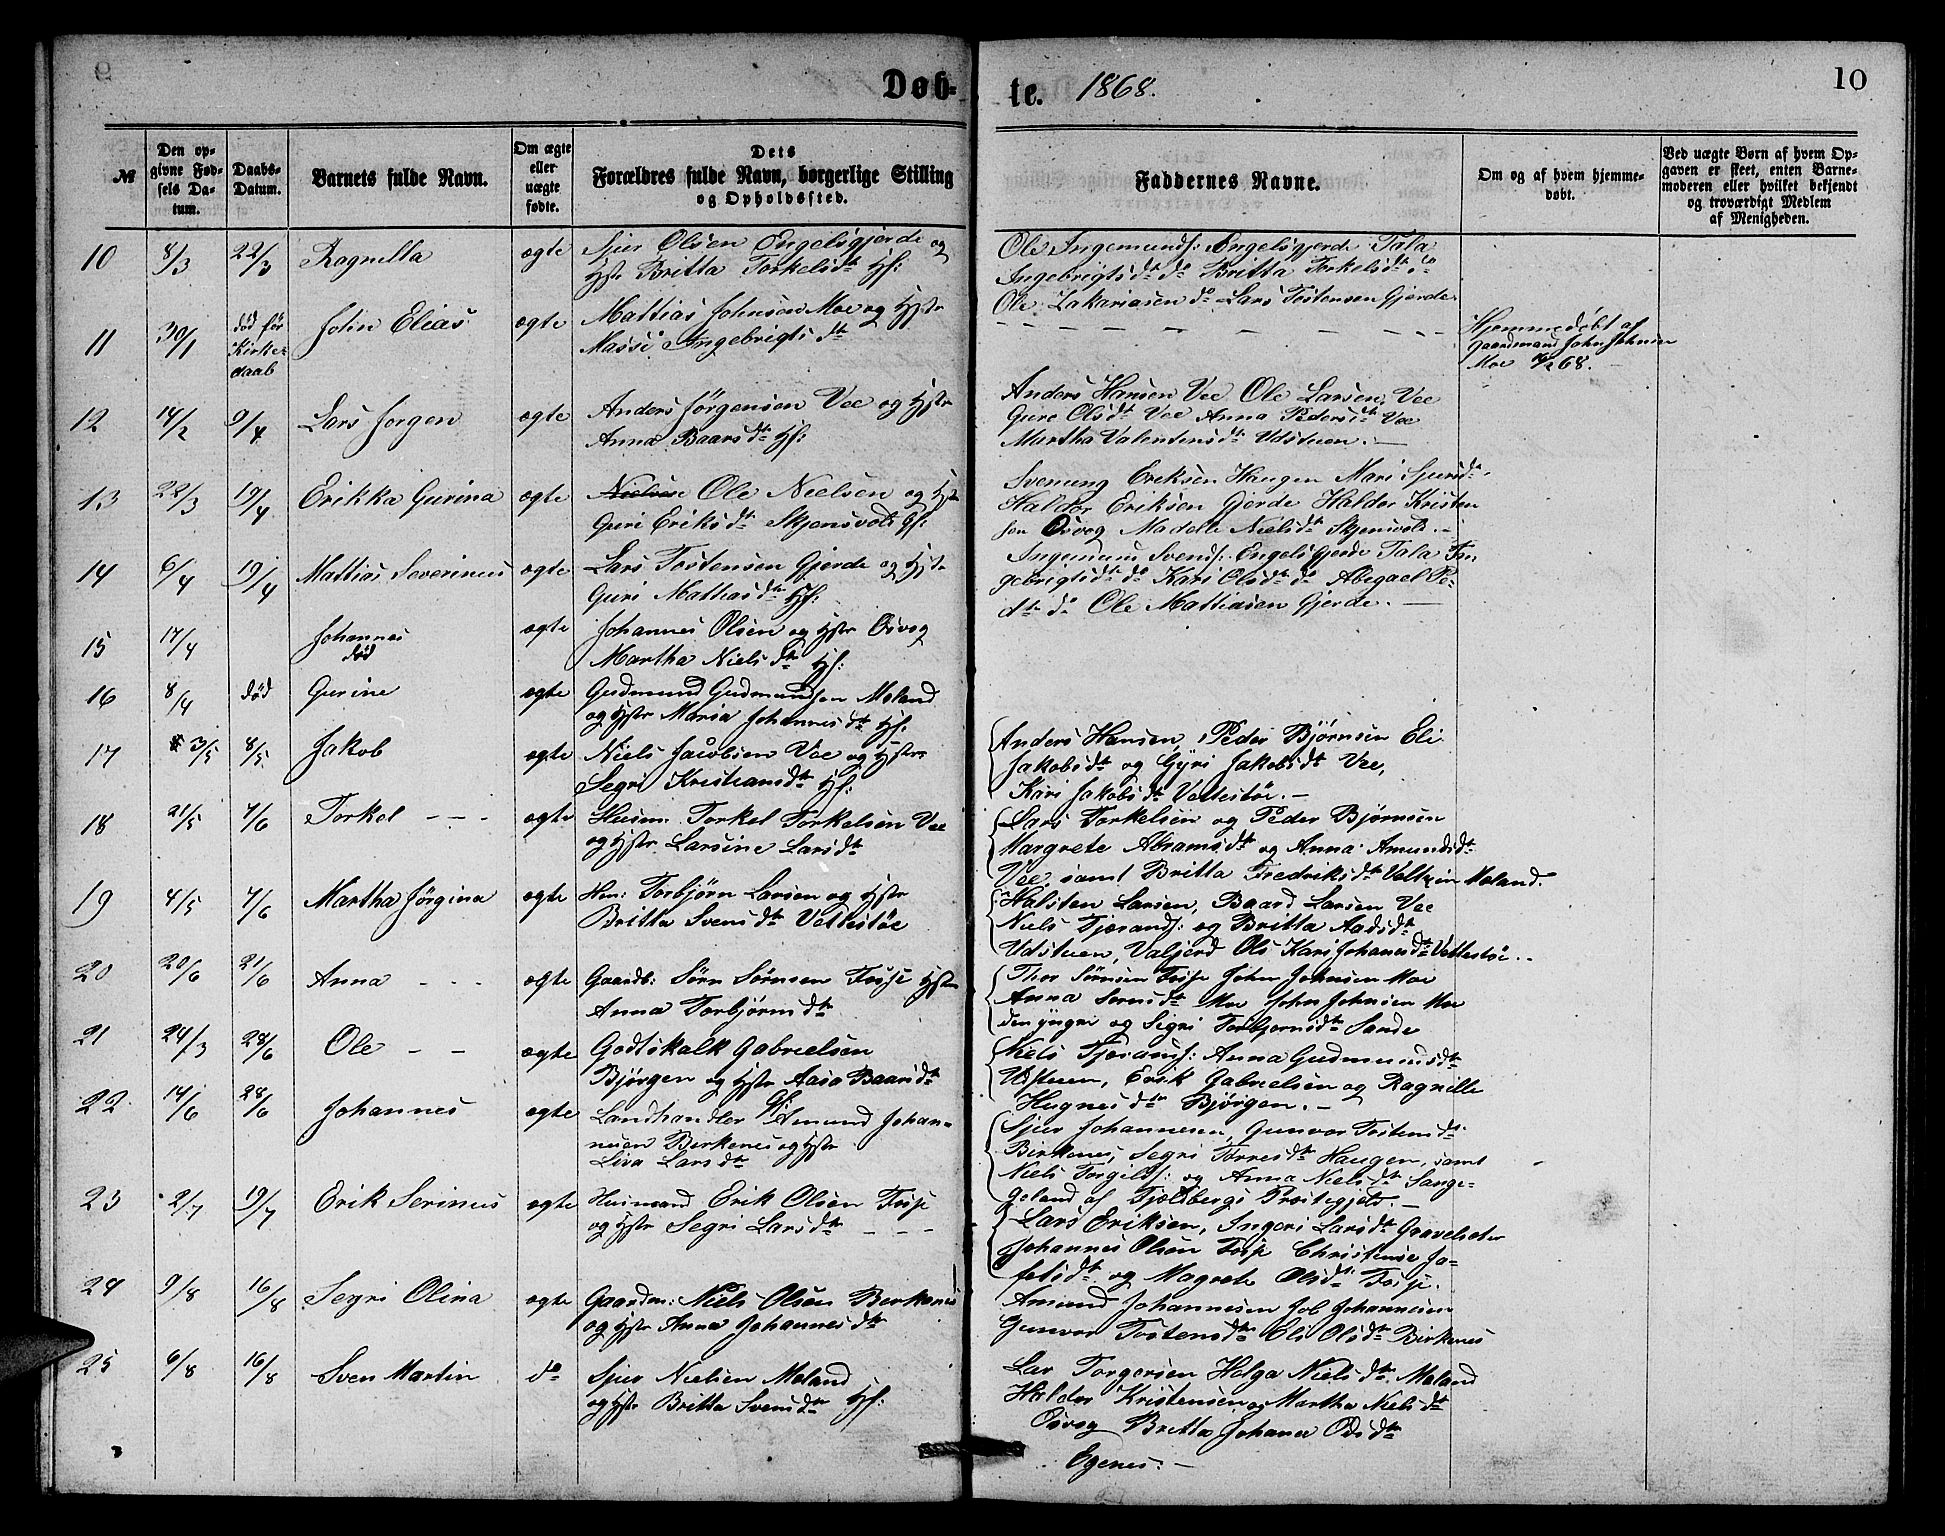 Døb-
te. 1868.
10
№
Den op-
givne Fød-
sels Da-
tum.
Daabs-
Datum.
Barnets fulde Navn.
Om ægte
eller
uægte
fødte.
Dets
Forældres fulde Navn, borgerlige Stilling
og Opholdssted.
Faddernes Navne.
Om og af hvem hjemme-
døbt.
Ved uægte Børn af hvem Op-
gaven er skeet, enten Barne-
moderen eller hvilket bekjendt
og troværdigt Medlem
af Menigheden.
10 8/3 22/3 Ragnilla ægte Sjur Olsen Engelsgjerde og
Hstr Britta Torkelsdtr Hf:
Ole Ingemunds: Engelsgjerde Tala
Ingebrigtsdtr do Britta Torkelsdtr do
Ole Zakariasen do Lars Tostensen Gjerde
11 30/1 død før
Kirke-
daab
John Elias ægte Mattias Johnson Moe og Hstr
Massi Ingebrigtsdtr
Hjemmedøbt af
gaardmand John Johnsen
Moe /2 68.
12 14/2 9/4 Lars Jorgen ægte Anders Jörgensen Vee og Hstr
Anna Baarsdtr Hf:
Anders Hansen Vee Ole Larsen, Vee
Guri Olsdtr Vee Anna Pedersdtr Vee
Martha Valentinsdtr Udstuen.
13 22/3 19/4 Erikka Gurina ægte Nielsen Ole Nielsen og Hstr
Guri Eriksdtr Skjensvold Hf:
Svenung Eriksen Haugen Mari Sjursdtr
Haldor Eriksen Gjerde Haldor Kristen
sen Osvog Madele Nielsdtr Skjensvold.
14 6/4 19/4 Mattias Severinus ægte Lars Tostensen Gjerde og Hstr
Guri Mattiasdtr Hf:
Ingemund Svends: Engelsgjerde Tala In-
gebrigtsdtr do Kari Olsdtr do Abegael Pe-
dtr do Ole Mattiasen Gjerde.
15 17/4 Johannes
død
ægte Johannes Olsen og Hstr Osvog
Martha Nielsdtr Hf:
16 8/4 død Gurine ægte Gudmund Gudmundsen Moland
og Hstr Maria Johannesdtr Hf.
17 3/5 8/5 Jakob ægte Niels Jacobsen Vee og Hstr
Segri Kristiansdtr Hf:
Anders Hansen, Peder Bjørnsen Eli
Jakobsdtr og Gyri Jakobsdtr Vee,
Kari Jakobsdtr Vettestøe.
18 21/5 7/6 Torkel ægte Husm: Torkel Torkelsen Vee
og Hstr Larsine Larsdtr
Lars Torkelsen og Peder Bjørnsen
Margrete Abramsdtr og Anna Amundsdtr
Vee samt Britta Fredriksdtr Moland.
19 4/5 7/6 Martha Jörgina ægte Hm: Torbjörn Larsen og Hstr
Britha Svensdtr Vettestøe
Halsten Larsen, Baard Larsen Vee
Niels Tjerands: og Britta Aadsdtr
Udstuen, Valjerd Ols Kari Johanesdtr Vettestøe.
20 20/6 21/6 Anna ægte Gaardb: Sörn Sörnsen Fosse Hstr
Anna Torbjörnsdtr
Thor Sørnsen Fosse John Johnsen Moe
Anna Sornsdtr Moe John Johnsen Moe
den yngre og Segri Torbjornsdtr Sande
21 24/3 28/6 Ole ægte Godtskalk Gabrielsen
Bjørgen og Hstr Aasa Baarsdtr
Hf:
Niels Tjerands: Anna Gudmundsdtr
Udstuen, Erik Gabrielsen og Ragnille
Hugnesdtr Bjørgen.
22 14/6 28/6 Johannes ægte Landhandler Amund Johan-
nesen Berkenes og Hstr
Liva Larsdtr
Sjur Johannesen, Gunvor Tostensdtr
Birkenes, Segri Torresdtr Haugen, samt
Niels Torgilds: og Anna Nielsdtr Sange-
goland af Fjelbergs Præstegjeld.
23 2/7 19/7 Erik Serinus ægte Husmand Erik Olsen Fosse
og Hstr Segri Larsdtr
Lars Eriksen, Ingeri Larsdtr
Johannes Olsen Fosse Christense Ja-
og Magrete Olsdtr Fosse.
24 9/8 16/8 Segri Olina ægte Gaardm: Niels Olsen Berkenes
og Hstr Anna Johannesdtr
Amund Johannesen Job Johannesen
Gunvor Tostensdtr Eli Olsdtr Birkenes
25 6/8 16/8 Sven Martin do Sjur Nielsen Moland
og Hstr Britta Svensdtr Hf:
Lar Torgersen Helga Nielsdtr Moland
Haldor Kristensen og Martha Nielsdtr
Osvog Britta Johana Odsdtr
Egenes.